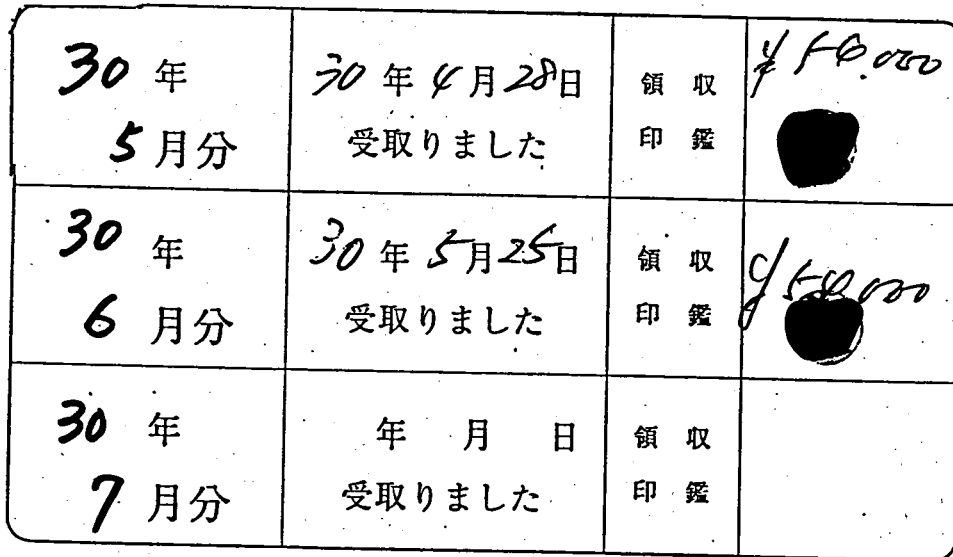 30 年
5 月分
30 年 4 月 28 日
受取りました
領 収
印 鑑
30 年
6 月分
30 年 5 月 25 日
受取りました
領 収
印 鑑
30 年
7 月分
年 月 日
受取りました
領 収
印 鑑